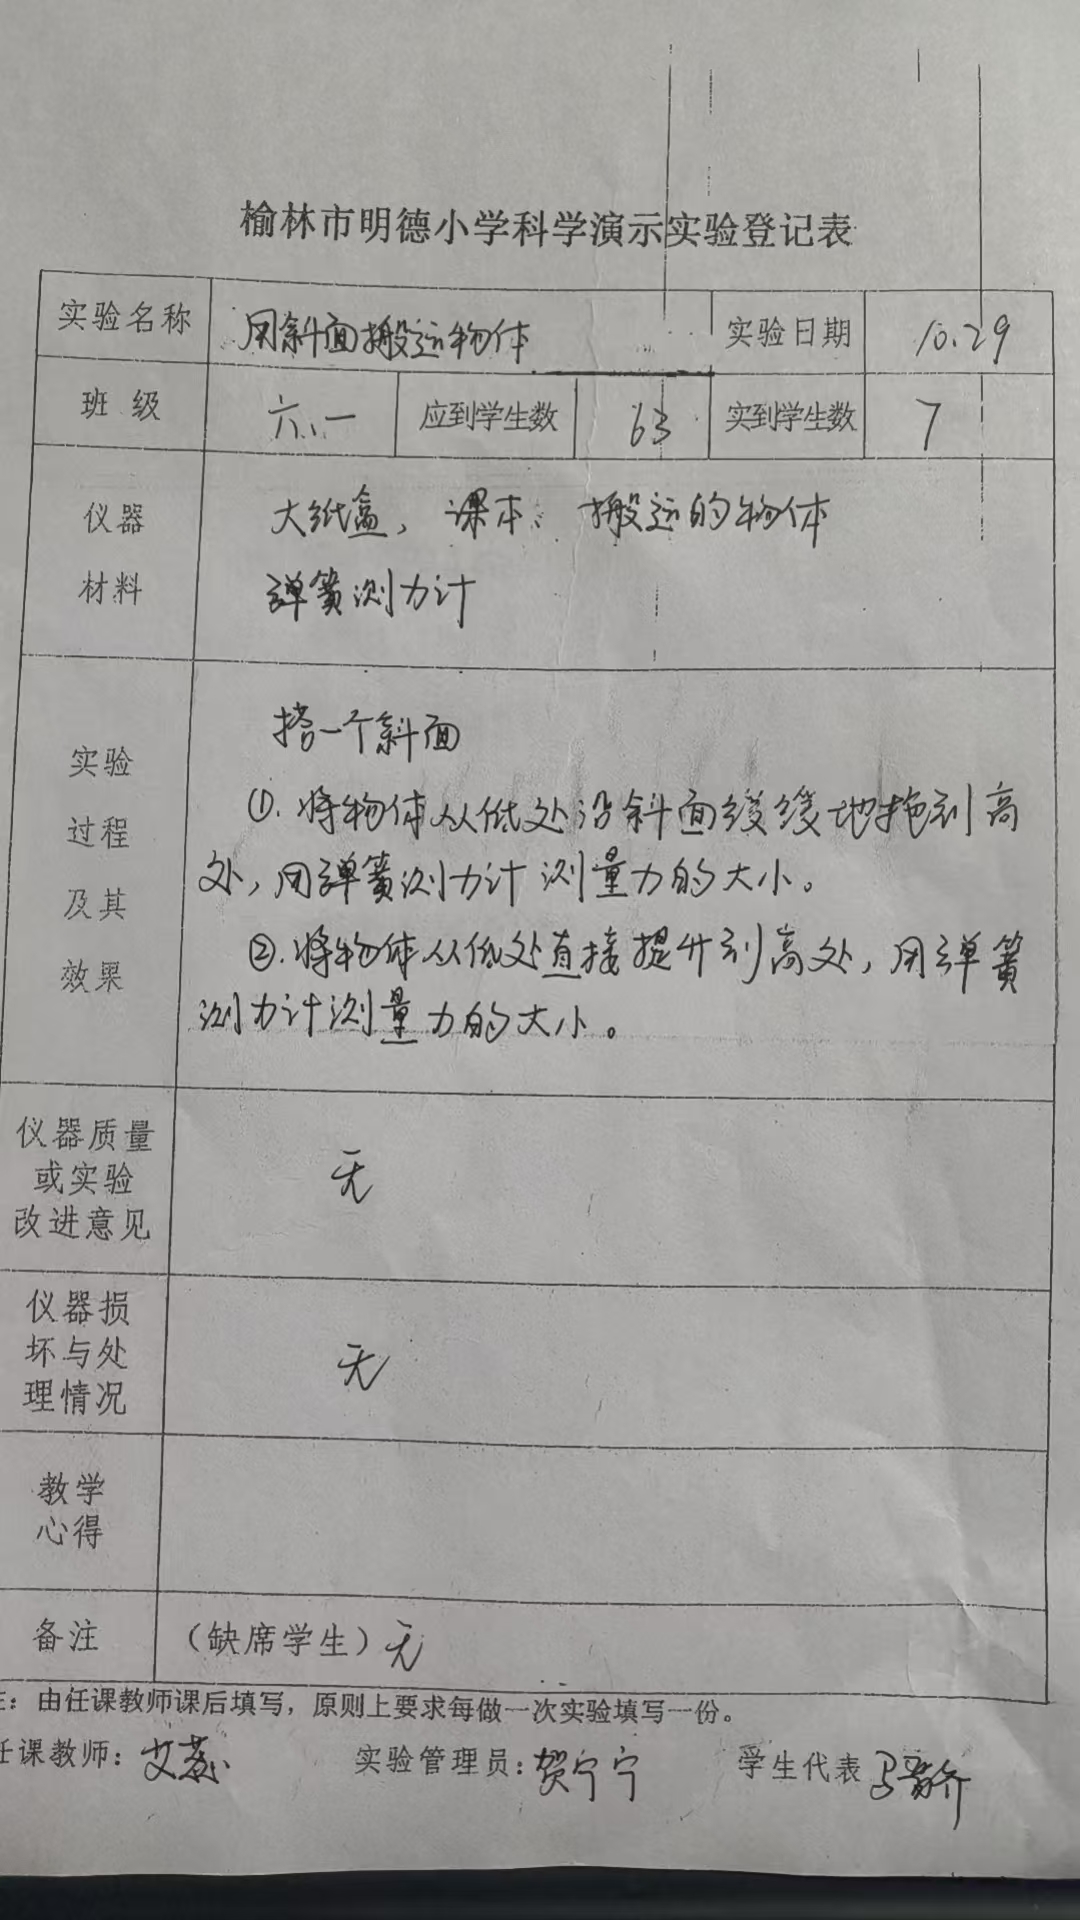 榆林市明德小学科学演示实验登记表
实验名称 用斜面搬运物体 实验日期 10.29
班级 六.一 应到学生数 63 实到学生数 7
仪器 大纸盒，课本、搬运的物体
材料 弹簧测力计
搭一个斜面
实验
过程
及其
效果
①.将物体从低处沿斜面缓缓地拖到高
处，用弹簧测力计测量力的大小。
②.将物体从低处直接提升到高处，用弹簧
测力计测量力的大小。
仪器质量
或实验
改进意见
无
仪器损
坏与处
理情况
无
教学
心得
备注 （缺席学生）无
注：由任课教师课后填写，原则上要求每做一次实验填写一份。
任课教师：艾 实验管理员：贺宁宁 学生代表